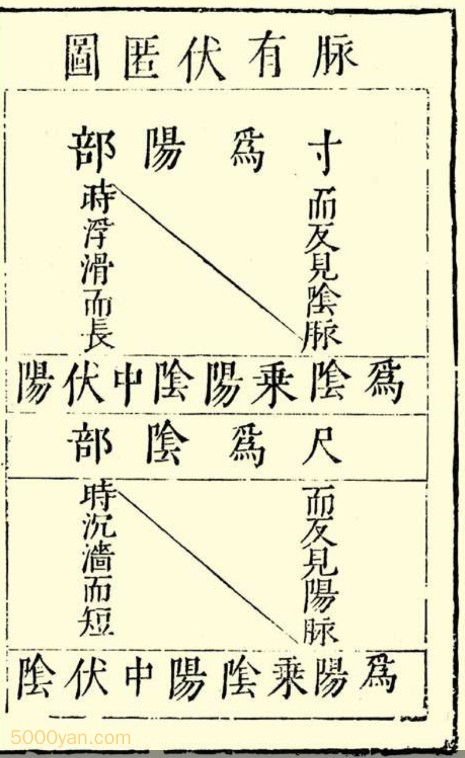 脉有伏匿圖
寸為陽部
而反見陰脉
時浮滑而長
為陰乗陽陰中伏陽
尺為陰部
而反見陽脉
時沉濇而短
為陽乗陰陽中伏陰
5000yan.com